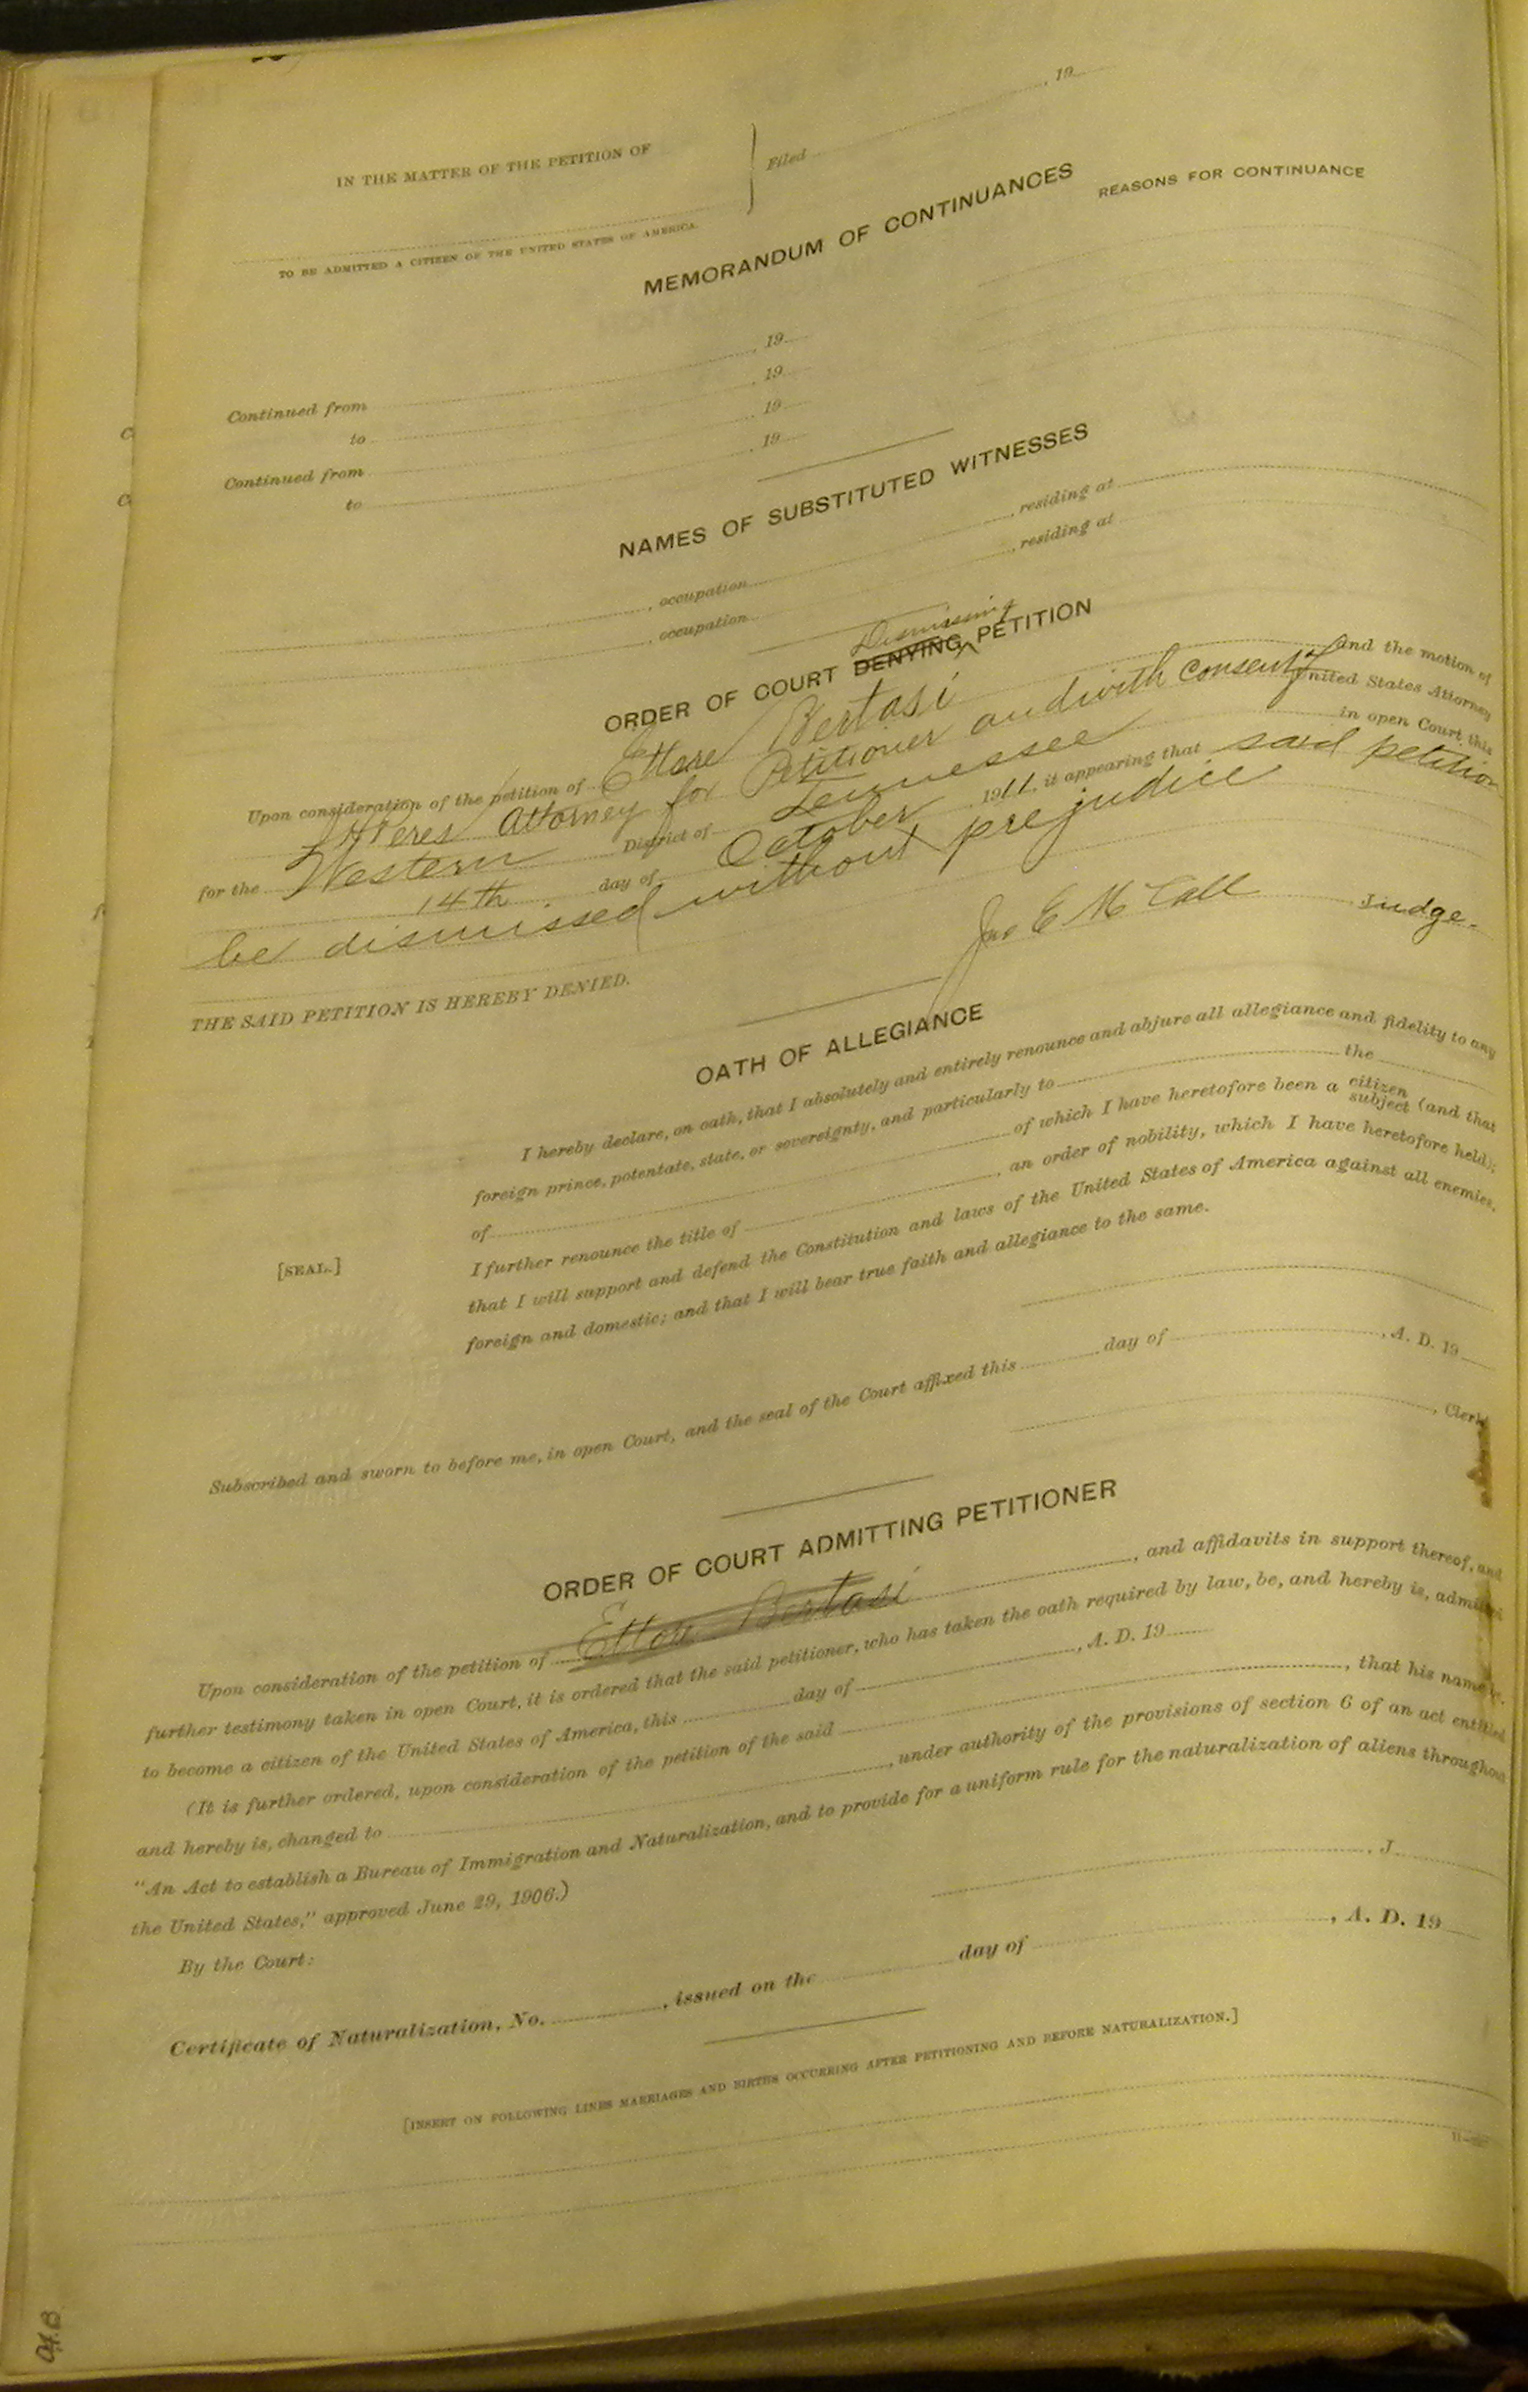 IN THE MATTER OF THE PETITION OF
Filed , 19
TO BE ADMITTED A CITIZEN OF THE UNITED STATES OF AMERICA.
MEMORANDUM OF CONTINUANCES
REASONS FOR CONTINUANCE
Continued from , 19
to , 19
Continued from , 19
to , 19
NAMES OF SUBSTITUTED WITNESSES
, occupation , residing at
, occupation , residing at
Dismissing
ORDER OF COURT DENYING PETITION
Upon consideration of the petition of Ettore Bertasi and the motion of
Heres Attorney for Petitioner and with consent of United States Attorney
for the Western District of Tennessee in open Court this
14th day of October 1911, it appearing that said petition
be dismissed without prejudice
THE SAID PETITION IS HEREBY DENIED.
Jno E McCall Judge.
OATH OF ALLEGIANCE
I hereby declare, on oath, that I absolutely and entirely renounce and abjure all allegiance and fidelity to any
foreign prince, potentate, state, or sovereignty, and particularly to the
of of which I have heretofore been a citizen subject (and that
I further renounce the title of , an order of nobility, which I have heretofore held);
that I will support and defend the Constitution and laws of the United States of America against all enemies,
foreign and domestic; and that I will bear true faith and allegiance to the same.
[SEAL.]
Subscribed and sworn to before me, in open Court, and the seal of the Court affixed this day of , A. D. 19
, Clerk
ORDER OF COURT ADMITTING PETITIONER
Upon consideration of the petition of Ettore Bertasi , and affidavits in support thereof, and
further testimony taken in open Court, it is ordered that the said petitioner, who has taken the oath required by law, be, and hereby is, admitted
to become a citizen of the United States of America, this day of , A. D. 19
(It is further ordered, upon consideration of the petition of the said , that his name be,
and hereby is, changed to , under authority of the provisions of section 6 of an act entitled
"An Act to establish a Bureau of Immigration and Naturalization, and to provide for a uniform rule for the naturalization of aliens throughout
the United States," approved June 29, 1906.)
By the Court:
, J.
Certificate of Naturalization, No. , issued on the day of , A. D. 19
[INSERT ON FOLLOWING LINES MARRIAGES AND BIRTHS OCCURRING AFTER PETITIONING AND BEFORE NATURALIZATION.]